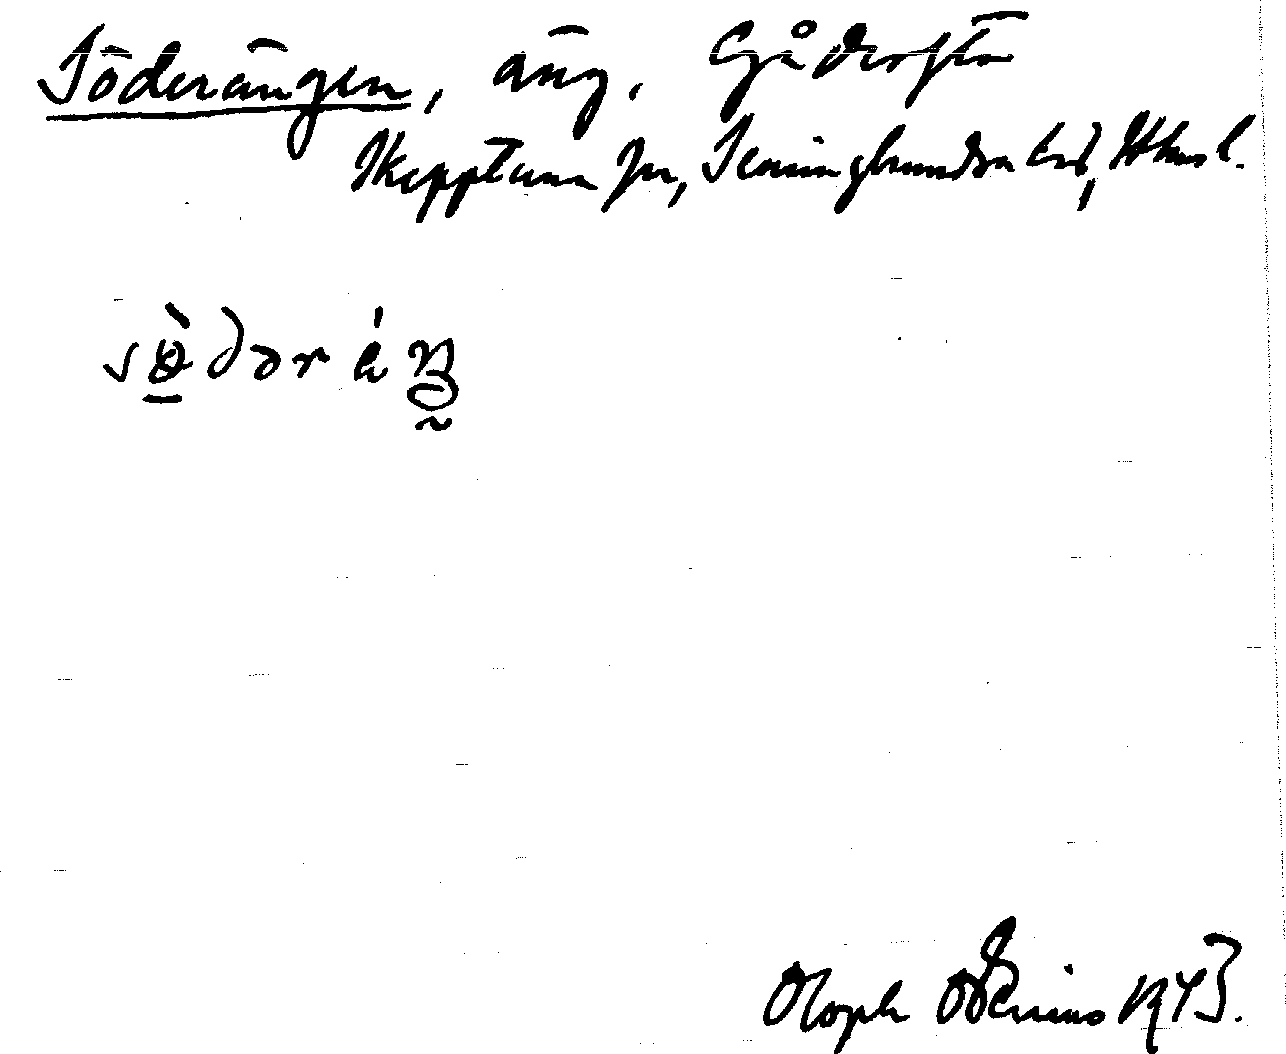 Söderängen, äng. Gådersta
Skepptuna sn, Seminghundra hd, Sthms l.
Oloph Odenius 1943.